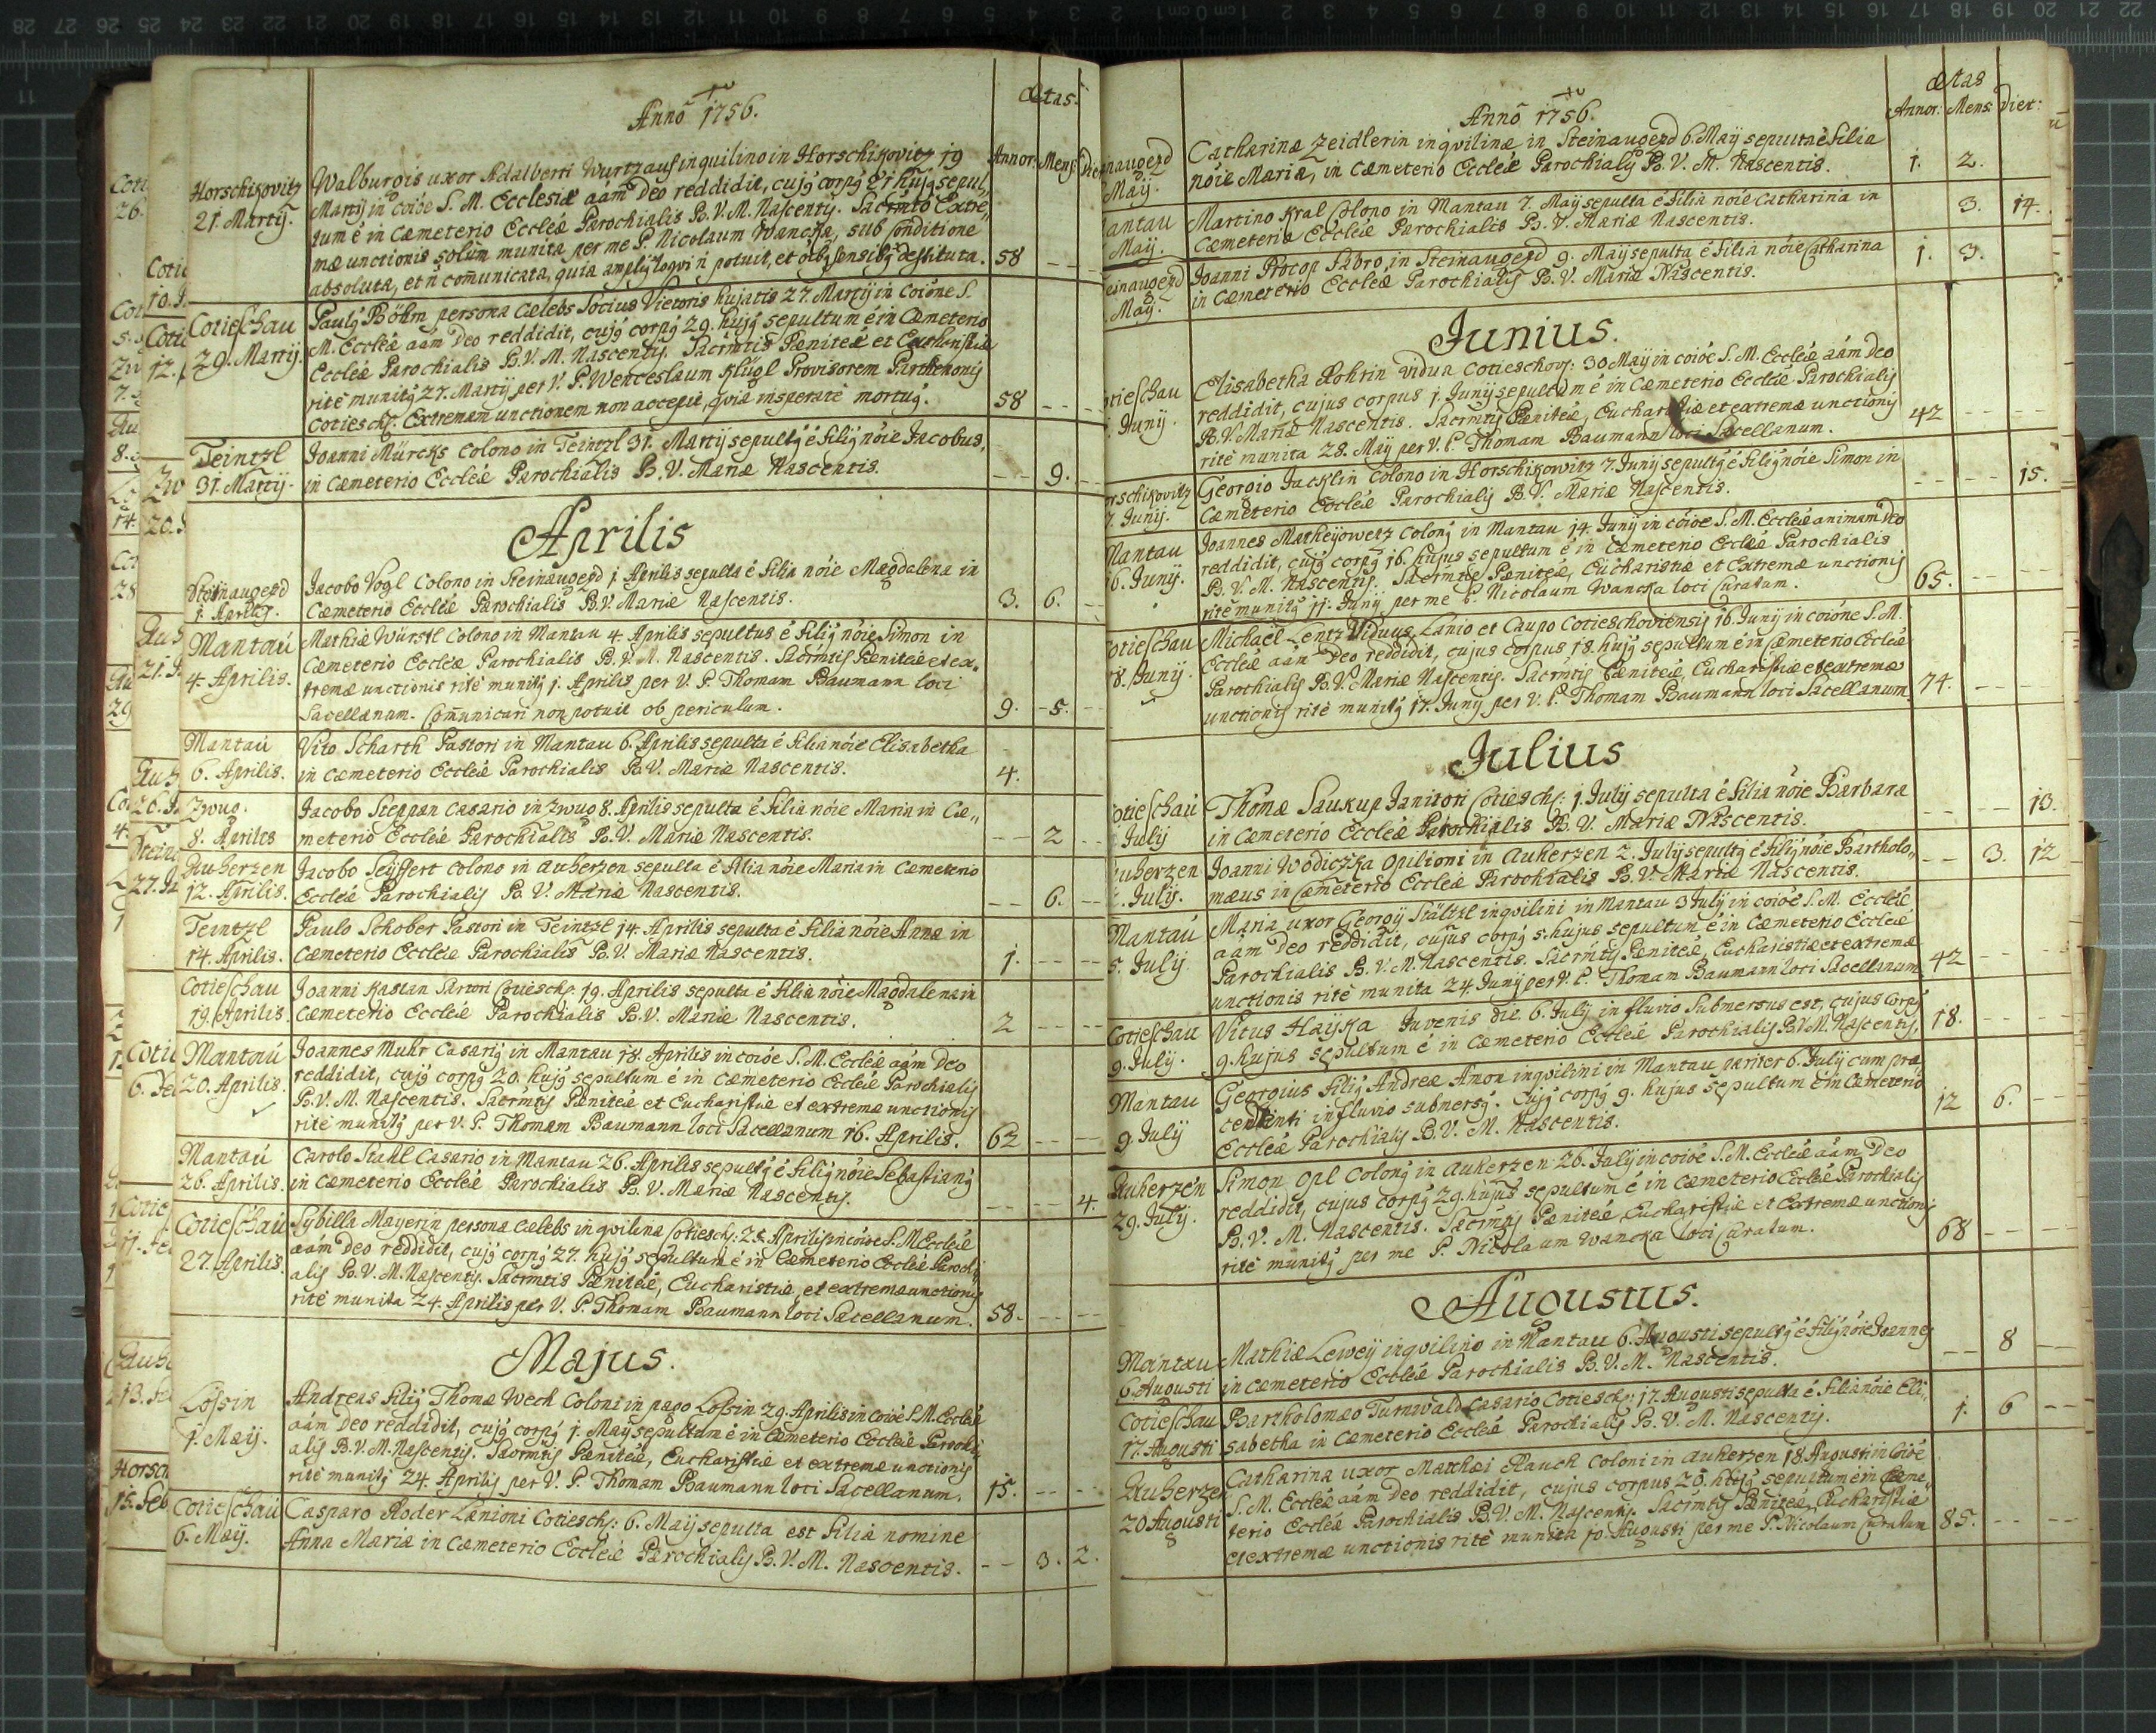 Anno 1756.
Ætas.
Annor: Mens: Die
Horschikovitz
21. Martÿ.
Walburgis uxor Adalberti Wurtzauf inquilino in Horschikovitz 19
Martÿ in coiõe S. M. Ecclesiæ aám Deo reddidit, cujq corpq 21 hujq sepul„
tum é in Cæmeterio Eccleæ Parochialis B. V. M. Nascentis. Sacrmto Extre„
mæ unctionis solùm munita per me P. Nicolaum Wancka, sub Conditione
absoluta, et ñ communicata, quia amplq loqvi ñ potuit, et oïbq sensibq destituta. 58
Cotieschau
29. Martÿ.
Paulq Böhm persona Cælebs Socius Vietoris hujatis 27. Martÿ in Coiõne S.
M. Eccleæ aám Deo reddidit, cujq corpq 29. hujq sepultum é in Cæmeterio
Eccleæ Parochialis B. V. M. Nascentis. Sacrmtis Pæniteæ et Eucharistiæ
ritè munitq 27. Martÿ per V. P. Wenceslaum Klügl Provisorem Parthenonis
Cotiesch: Extremam unctionem non accepit, quia insperatè mortuq. 58
Teintzl
31. Martÿ.
Joanni Mürcks Colono in Teintzl 31. Martÿ sepultq é Filiq nõie Jacobus,
in Cæmeterio Eccleæ Parochialis B. V. Mariæ Nascentis. 9.
Aprilis
Steinaugezd
1. Aprilis.
Jacobo Vogl Colono in Steinaugezd 1. Aprilis sepulta é Filia nõie Magdalena in
Cæmeterio Eccleæ Parochialis B. V. Mariæ Nascentis. 3. 6.
Mantau
4. Aprilis.
Mathiæ Würstl Colono in Mantau 4. Aprilis sepultus é Filiq nõie Simon in
Cæmeterio Eccleæ Parochialis B. V. M. Nascentis. Sacrmtis Pæniteæ et ex„
tremæ unctionis ritè munitq 1. Aprilis per V. P. Thomam Baumann loci
Sacellanum. Communicari non potuit ob periculum. 9. 5.
Mantau
6. Aprilis.
Vito Scharth Pastori in Mantau 6. Aprilis sepulta é Filia nõie Elisabetha
in Cæmeterio Eccleæ Parochialis B. V. Mariæ Nascentis. 4.
Zwug.
8. Aprilis
Jacobo Steppan Casario in Zwug 8. Aprilis sepulta é Filia nõie Maria in Cæ„
meterio Eccleæ Parochialis B. V. Mariæ Nascentis. 2
Auherzen
12. Aprilis.
Jacobo Seÿffert Colono in Auherzen sepulta é Filia nõie Maria in Cæmeterio
Eccleæ Parochialis B. V. Mariæ Nascentis. 6.
Teintzl
14. Aprilis.
Paulo Schober Pastori in Teintzl 14. Aprilis sepulta é Filia nõie Anna in
Cæmeterio Eccleæ Parochialis B. V. Mariæ Nascentis. 1.
Cotieschau
19. Aprilis.
Joanni Kastan Sartori Cotiesch: 19. Aprilis sepulta é Filia nõie Magdalena in
Cæmeterio Eccleæ Parochialis B. V. Mariæ Nascentis. 2
Mantau
20. Aprilis.
Joannes Muhr Casariq in Mantau 18. Aprilis in coiõe S. M. Eccleæ aám Deo
reddidit, cujq corpq 20. hujq sepultum é in Cæmeterio Eccleæ Parochialis
B. V. M. Nascentis. Sacrmtis Pæniteæ et Eucharistiæ et extremæ unctionis
ritè munitq per V. P. Thomam Baumann loci Sacellanum 16. Aprilis. 62
Mantau
26. Aprilis.
Carolo Stahl Casario in Mantau 26. Aprilis sepultq é Filiq nõie Sebastianq
in Cæmeterio Eccleæ Parochialis B. V. Mariæ Nascentis. 4.
Cotieschau
27. Aprilis.
Sybilla Mayerin persona Cælebs inqvilina Cotiesch: 25. Aprilis in coiõe S. M. Eccleæ
aám Deo reddidit, cujq corpq 27. hujq sepultum é in Cæmeterio Eccleæ Paroch„
alis B. V. M. Nascentis. Sacrmtis Pæniteæ, Eucharistiæ, et extremæ unctionis
ritè munita 24. Aprilis per V. P. Thomam Baumann loci Sacellanum. 58.
Majus.
Lossin
1. Maÿ.
Andreas Filiq Thomæ Wech Coloni in pago Lossin 29. Aprilis in coiõe S. M. Eccleæ
aám Deo reddidit, cujq corpq 1. Maÿ sepultum é in Cæmeterio Eccleæ Parochi
alis B. V. M. Nascentis. Sacrmtis Pæniteæ, Eucharistiæ et extremæ unctionis
ritè munitq 24. Aprilis per V. P. Thomam Baumann loci Sacellanum. 15.
Cotieschau
6. Maÿ.
Casparo Roder Lanioni Cotiesch: 6. Maÿ sepulta est Filia nomine
Anna Mariæ in Cæmeterio Eccleæ Parochialis B. V. M. Nascentis. 3. 2.
Anno 1756.
Ætas
Annor: Mens: Dier:
naugezd
Maÿ.
Catharinæ Zeidlerin inqvilinæ in Steinaugezd 6. Maÿ sepulta é Filia
nõie Mariæ, in Cæmeterio Eccleæ Parochialis B. V. M. Nascentis. 1. 2.
antau
Maÿ.
Martino Kral Colono in Mantau 7. Maÿ sepulta é Filia nõie Catharina in
Cæmeteriæ Eccleæ Parochialis B. V. Mariæ Nascentis. 3. 14.
einaugezd
Maÿ.
Joanni Procop Fabro in Steinaugezd 9. Maÿ sepulta é Filia nõie Catharina
in Cæmeterio Eccleæ Parochialis B. V. Mariæ Nascentis. 1. 3.
Junius.
tieschau
Junÿ.
Elisabetha Rohrin Vidua Cotieschov: 30 Maÿ in coiõe S. M. Eccleæ aám Deo
reddidit, cujus corpus 1. Junÿ sepultum é in Cæmeterio Eccleæ Parochialis
B. V. Mariæ Nascentis. Sacrmtis Pæniteæ, Eucharistiæ et extremæ unctionis
ritè munita 28. Maÿ per V. P. Thomam Baumann loci Sacellanum. 42
orschikovitz
7. Junÿ.
Georgio Jacklin Colono in Horschikowitz 7. Junÿ sepultq é Filiq nõie Simon in
Cæmeterio Eccleæ Parochialis B. V. Mariæ Nascentis. 15.
Mantau
16. Junÿ.
Joannes Matheÿowetz Colonq in Mantau 14. Junÿ in coiõe S. M. Eccleæ animam Deo
reddidit, cujq corpq 16. hujus sepultum é in Cæmeterio Eccleæ Parochialis
B. V. M. Nascentis. Sacrmtis Pæniteæ, Eucharistiæ et Extremæ unctionis
ritè munitq 11. Junÿ per me P. Nicolaum Wancka loci Curatum. 65.
otieschau
18. Junÿ.
Michaël Lentz Viduus Lanio et Caupo Cotieschoviensis 16. Junÿ in coiõne S. M.
Eccleæ aám Deo reddidit, cujus corpus 18. hujq sepultum é in Cæmeterio Eccleæ
Parochialis B. V. Mariæ Nascentis. Sacrmtis Pæniteæ, Eucharistiæ et extremæ
unctionis ritè munitq 17. Junÿ per V. P. Thomam Baumann loci Sacellanum. 74.
Julius
otieschau
Julÿ
Thomæ Saukup Janitori Cotiesch: 1. Julÿ sepulta é Filia nõie Barbara
in Cæmeterio Eccleæ Parochialis B. V. Mariæ Nascentis. 13.
uherzen
Julÿ.
Joanni Wodiczka Opilioni in Auherzen 2. Julÿ sepultq é Filiq nõie Bartholo„
mæus in Cæmeterio Eccleæ Parochialis B. V. Mariæ Nascentis. 3. 12
Mantau
5. Julÿ.
Maria uxor Georgÿ Stältzl inqvilini in Mantau 3 Julÿ in coiõe S. M. Eccleæ
aám Deo reddidit, cujus corpq 5. hujus sepultum é in Cæmeterio Eccleæ
Parochialis B. V. M. Nascentis. Sacrmtis Pæniteæ, Eucharistiæ et extremæ
unctionis ritè munita 24. Junÿ per V. P. Thomam Baumann loci Sacellanum 42
Cotieschau
9. Julÿ.
Vitus Haÿska Juvenis die 6. Julÿ in fluvio Submersus est, cujus Corpq
9. hujus sepultum é in Cæmeterio Eccleæ Parochialis B. V. M. Nascentis, 18.
Mantau
9. Julÿ
Georgius Filiq Andreæ Amon inqvilini in Mantau pariter 6. Julÿ cum præ
cedenti in fluvio submersq. Cujq corpq 9. hujus sepultum é in Cæmeterio
Eccleæ Parochialis B. V. M. Nascentis. 12 6.
Auherzen
29. Julÿ.
Simon Opl Colonq in Auherzen 26. Julÿ in coiõe S. M. Eccleæ aám Deo
reddidit, cujus corpq 29. hujus sepultum é in Cæmeterio Eccleæ Parochialis
B. V. M. Nascentis. Sacrmtis Pæniteæ Eucharistiæ et Extremæ unctionis
ritè munitq per me P. Nicolaum Wancka loci Curatum. 68
Augustus.
Mantau
6. Augusti
Mathiæ Leweÿ inqvilino in Mantau 6. Augusti sepultq é Filiq nõie Joannes
in Cæmeterio Eccleæ Parochialis B. V. M. Nascentis. 8
Cotieschau
17. Augusti
Bartholomæo Turnwald Casario Cotiesch: 17. Augusti sepulta é Filia nõie Eli„
sabetha in Cæmeterio Eccleæ Parochialis B. V. M. Nascentis. 1. 6
Auherzen
20 Augusti
Catharina uxor Matthæi Rauch Coloni in Auherzen 18. Augusti in Coiõe
S. M. Eccleæ aám Deo reddidit, cujus corpus 20. hujq sepultum é in Cæme„
terio Eccleæ Parochialis B. V. M. Nascentis. Sacrmtis Pæniteæ, Eucharistiæ
et extremæ unctionis ritè munita 10. Augusti per me P. Nicolaum Curatum 85.